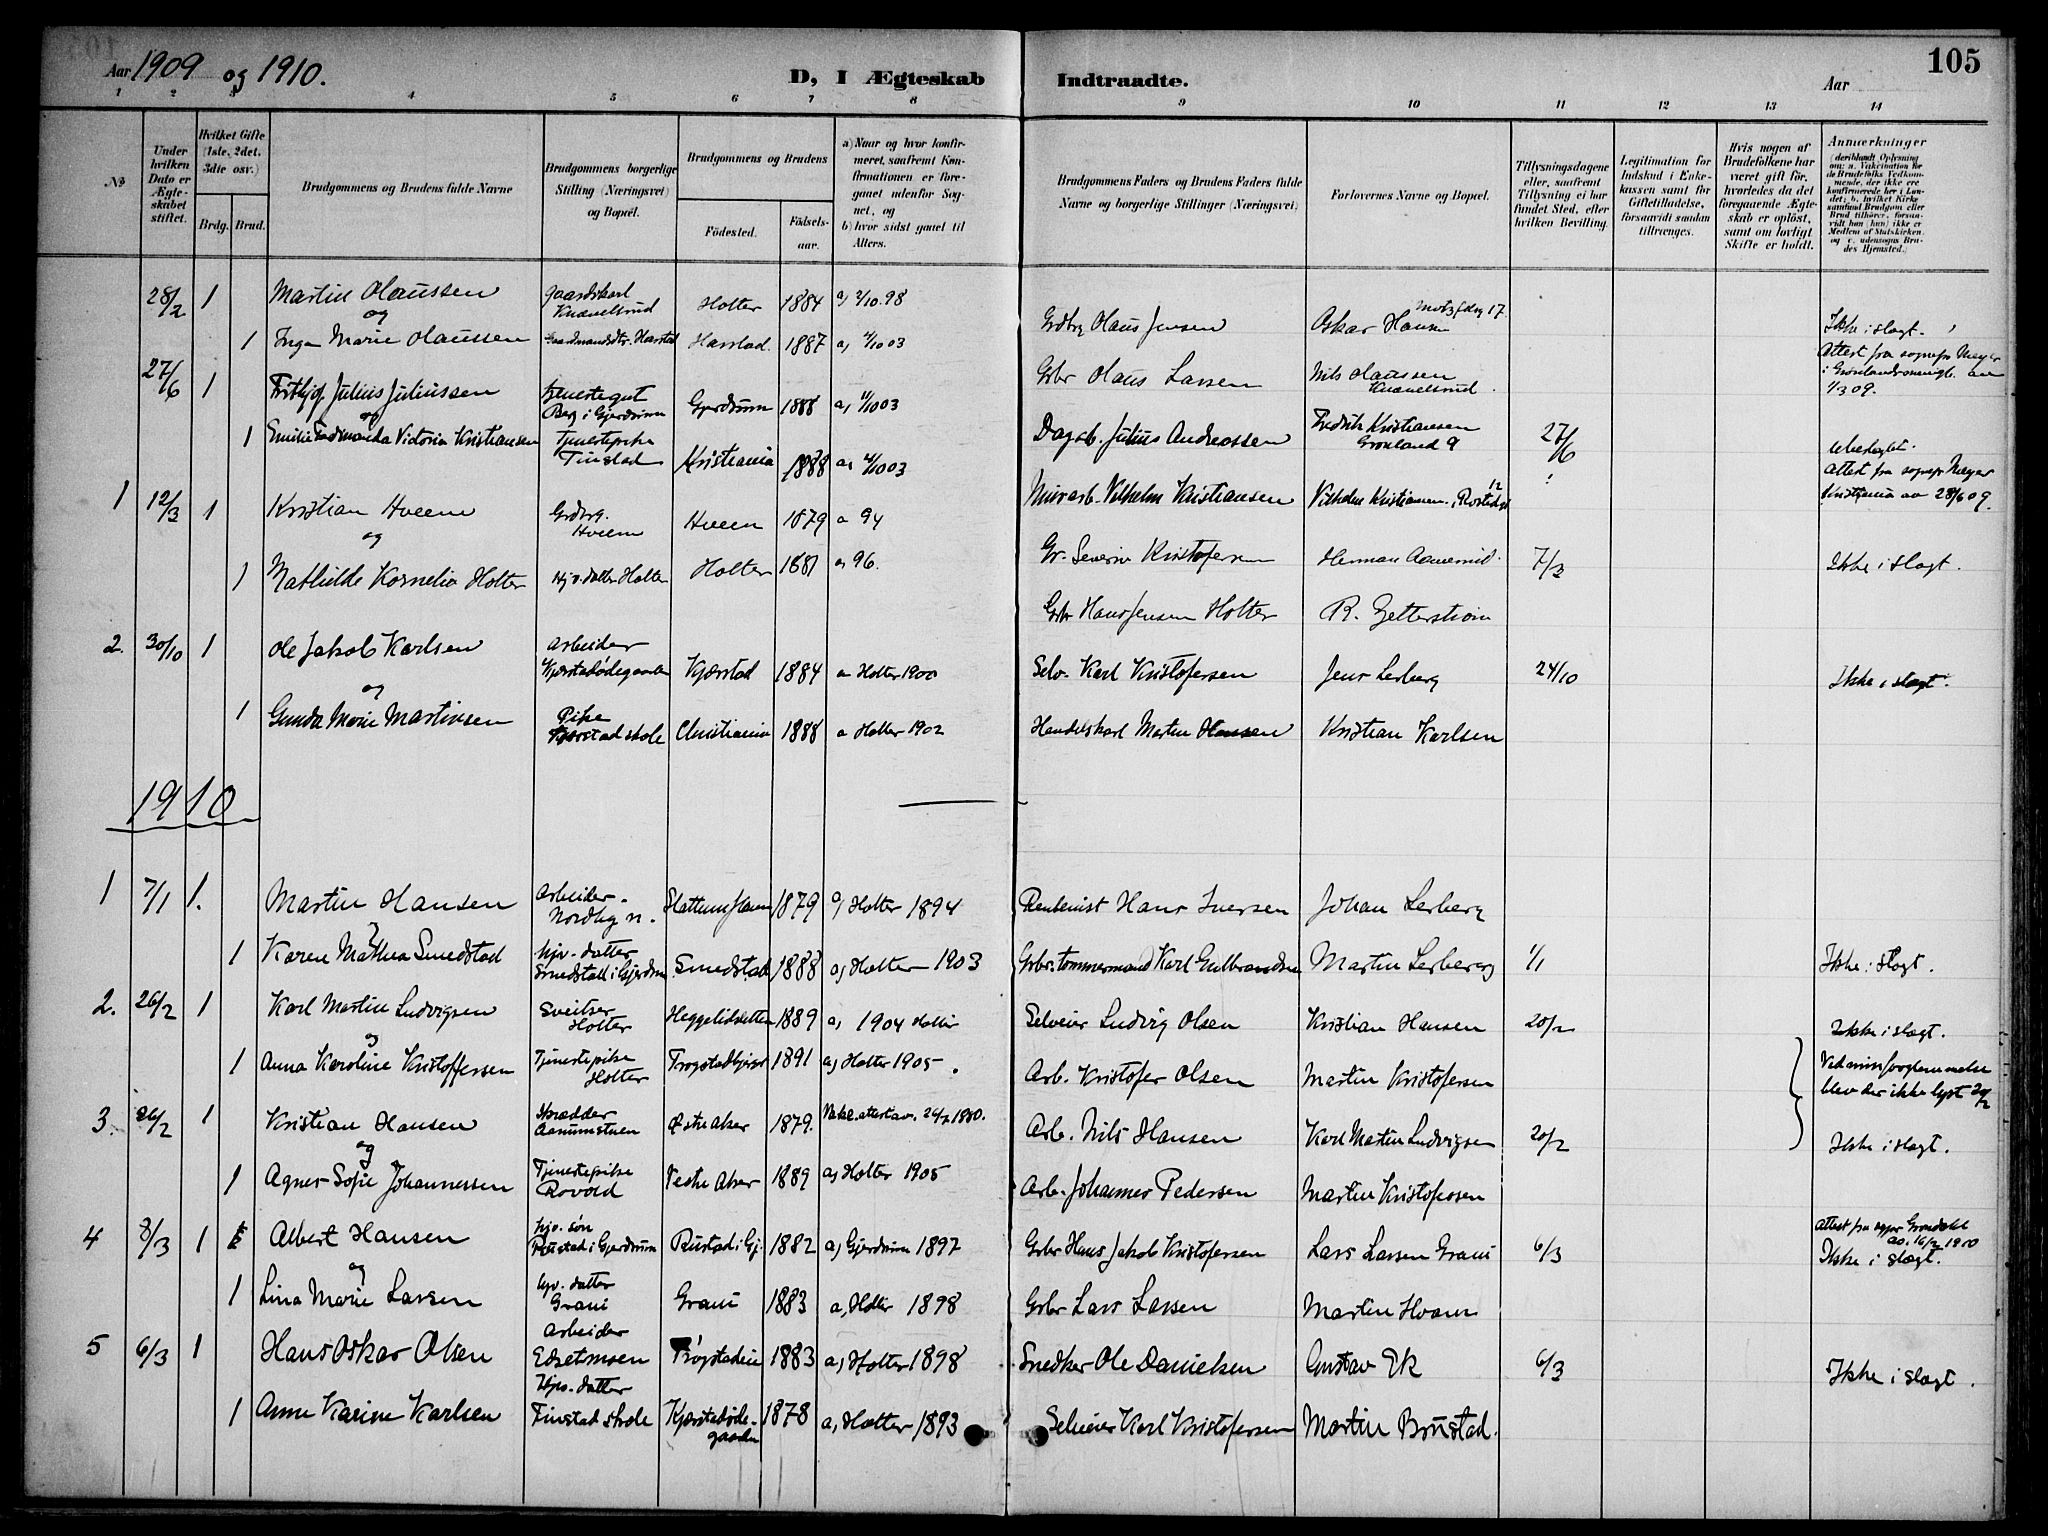 Aar 1909 og 1910.
D, I Ægteskab Indtraadte.
Aar
105
1 2 3 4 5 6 7 8 9 10 11 12 13 14
No
Under hvilken Dato er Ægteskabet stiftet.
Hvilket Gifte (1ste, 2det, 3die osv.)
Brdg. Brud.
Brudgommens og Brudens fulde Navne
Brudgommens borgerlige Stilling (Næringsvei) og Bopæl.
Brudgommens og Brudens
Födested.
Födselsaar.
a) Naar og hvor konfirmeret, saafremt Konfirmationen er foregaaet udenfor Sognet, og
b) hvor sidst gaaet til Alters.
Brudgommens Faders og Brudens Faders fulde Navne og borgerlige Stillinger (Næringsvei)
Forlovernes Navne og Bopæl.
Tillysningsdagene eller, saafremt Tillysning ei har fundet Sted, efter hvilken Bevilling.
Legitimation for Indskud i Enkekassen samt for Giftetilladelse, forsaavidt saadan tiltrænges.
Hvis nogen af Brudefolkene har været gift för, hvorledes da det foregaaende Ægteskab er oplöst, samt om lovligt Skifte er holdt.
Anmærkninger
28/2 1 Martin Olaussen Gaardskarl Holter 1884 a) 2/10.98 Grdbrg Olaus Jensen Oskar Hansen
og
1 Inga Marie Olaussen Harstad 1887 a) 4/10 03 Gbr Olaus Larsen Nils Olaussen
Ikke i slægt.
27/6 1 Fritjof Julius Juliussen tjenestegut Berg i Gjerdrum Gjerdrum 1888 a) 11/10 03 Dagarb. Julius Andreassen Fredrik Kristiansen Grønland 9 27/6
og
1 Emilie Ferdinanda Victoria Kristiansen Tjenestepike Tinstad Kristiania 1888 a) 4/10 03 Murarb. Vilhelm Kristiansen Vilhelm Kristiansen
ubeslægtet.
1 12/3 1 Kristian Hveem Grdbrg. Hveem Hveem 1879 a 94 Gr. Severin Kristofersen Herman 7/3 Ikke i slægt.
og
1 Mathilde Kornelia Holter Hjv. datter Holter Holter 1881 a) 96. Gbr Hans Jensen Holter R. Zetterstrøm
2. 30/10 1 Ole Jakob Karlsen Arbeider Kjærstadødegaarden Kjærstad 1884 a Holter 1900 Selv. Karl Kristofersen Jens Lerberg 24/10 Ikke i slægt.
og
1 Gunda Marie Martinsen Pike Kjærstad skole Christiania 1888 a Holter 1902 Handelskarl Martin Hansen Kristian Karlsen
1910
1 7/1 1. Martin Hansen Arbeider Nordby n. 1879 a) Holter 1894 Hans Iversen Johan Lerberg
1 Karen Mathea Smedstad hjv. datter Smedstad i Gjerdrum Smedstad 1888 a) Holter 1903 Gbr. tømmermand Karl Gulbrandsen Martin Lerberg 1/1 Ikke i slægt.
2. 26/2 1 Karl Martin Ludvigsen Sveitser Holter 1889 a) 1904 Holter Selveier Ludvig Olsen Kristian Hansen 20/2 Ikke i slægt.
og
1 Anna Karoline Kristoffersen Tjenestepike Holter 1891 a) Holter 1905 Arb. Kristofer Olsen Martin Kristofersen
Ved min forglemmelse blev der ikke lyst 20/2
3. 26/2 1 Kristian Hansen Skrædder Østre Aker 1879. Vakc. attest av. 26/2 1880. Arb. Nils Hansen Karl Martin Ludvigsen 20/2 Ikke i slægt.
og
1 Agnes Sofie Johannessen Tjenestepike Vestre Aker 1889 a) Holter 1905 Arb. Johannes Pedersen Martin Kristofersen
4 8/3 1 Albert Hansen hjv. søn Rustad i Gjerdrum Rustad i Gj. 1882 a) Gjerdrum 1897 Gbr Hans Jakob Kristofersen Lars Larsen Grani 6/3 Ikke i slægt.
og
1 Lina Marie Larsen hjv. datter Grani Grani 1883 a) Holter 1898 Gbr Lars Larsen Martin Hvam
5 6/3 1 Hans Oskar Olsen Arbeider 1883 a) Holter 1898 Snedker Ole Danielsen Gustav Ek 6/3 Ikke i slægt.
1 Anne Karine Karlsen Hjv. datter Finstad skole Kjærstadødegaarden 1878 a) Holter 1893 Selveier Karl Kristofersen Martin Brustad.